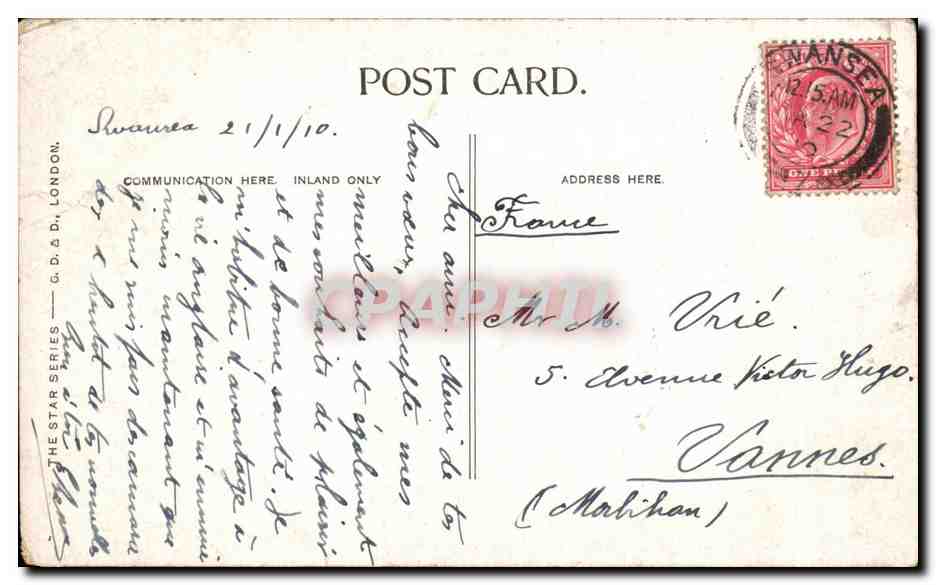 POST CARD.
Swansea 21/1/10.
COMMUNICATION HERE. INLAND ONLY
ADDRESS HERE.
THE STAR SERIES — G. D. & D., LONDON.
SWANSEA
12.15 AM
JA 22
ONE PENNY
France
Mr M. Vrié.
5. Avenue Victor Hugo.
Vannes.
(Morbihan)
Cher ami. Merci de tes
bons vœux, accepte mes
meilleurs et également
mes souhaits de plaisir
et de bonne santé. Je
m'habitue d'avantage à
la vie anglaise et m'ennuie
moins maintenant que
je me suis fais des camara
des. A bientôt de tes nouvelles
Bien à toi
CPAPHIL